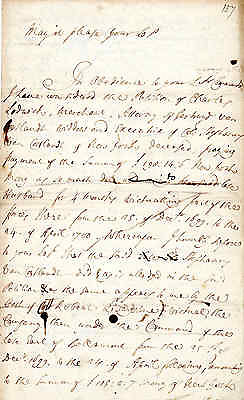 157
May it please your Lop
In Obedience to your Lops Commands
I have considered the Petition of Charles
Lodwick, Merchant, Attorney of Gertrud van
Cortlandt Widdow and Executrix of Col. Stephanus
van Cortlandt of New York deceased praying
payment of the Summe of £ 198.14.6 New York
Money as so much due
Husband for 4 Months Victualling part of the
forces there from the 25. of Decr 1699. to the
24. of April 1700, Whereupon I humbly Report
to your Lop that the said Stephanus
van Cortlandt did as is alledged in the said
Petition & the same appears to me by the
of Robert Victual the
Company then under the Command of the
late Earl of Bellomont from the 25. of
Decr 1699. to the 24. of April following, amounting
to the summe of Money of New York